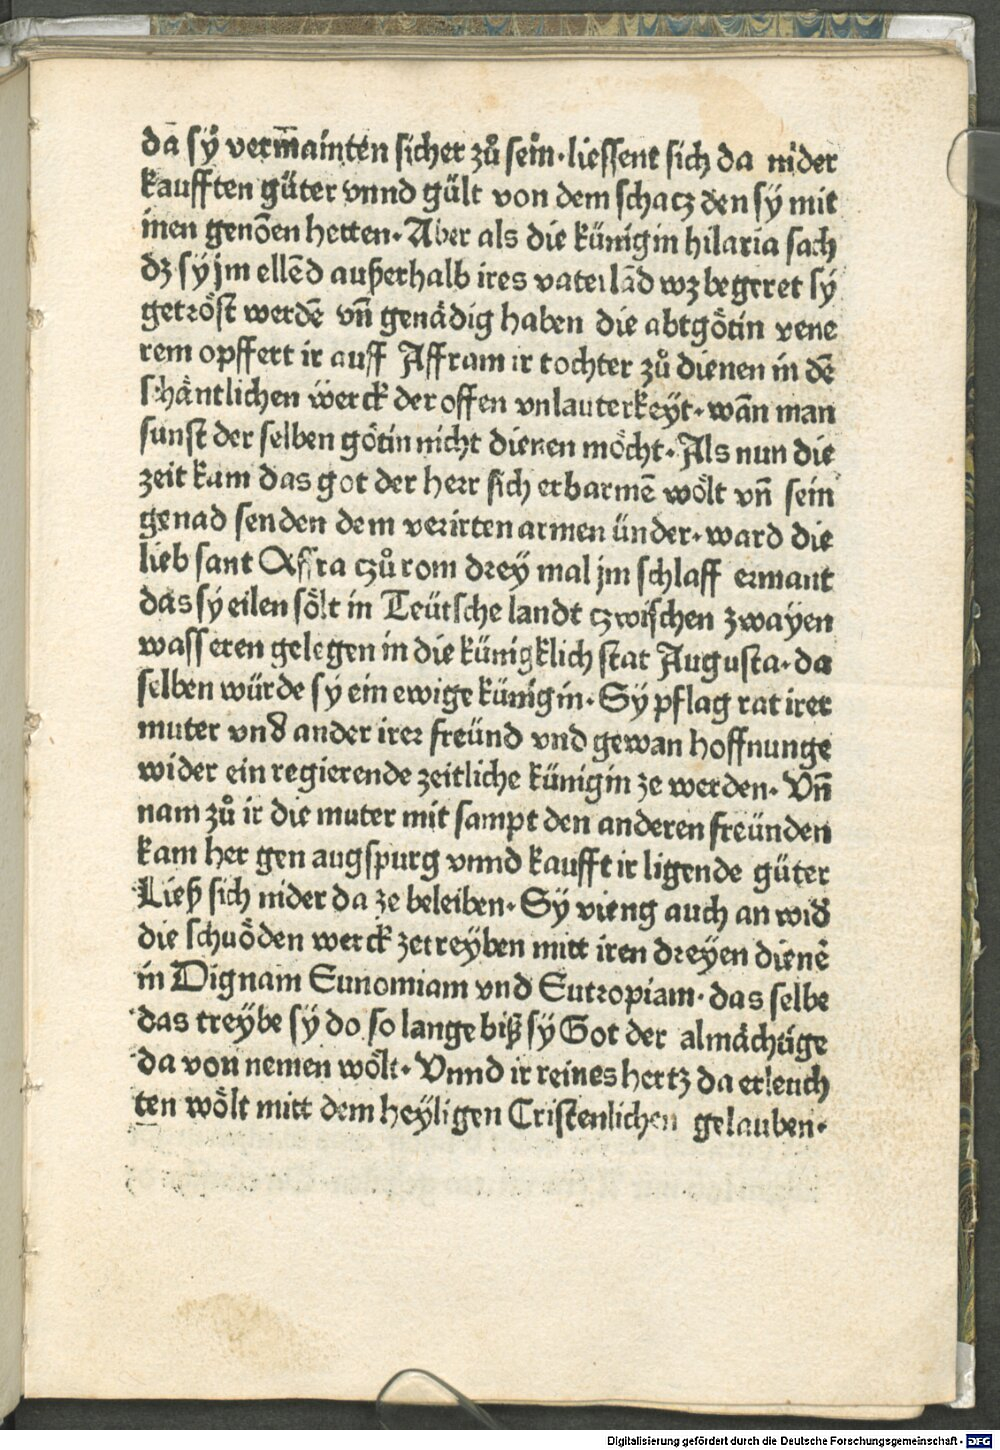 dā sÿ verm̄ainten sicher zů sein·liessent sich da nider
kaufften güter vnnd gült von dem schacz den sÿ mit
inen genōen hetten·Aber als die künigin hilaria sach
dz sÿ jm ellēd außerhalb ires vaterlād wz begeret sÿ
getröst werdē vn̄ genädig haben die abtgötin vene
rem opffert ir auff Affram ir tochter zů dienen in dē
schäntlichen werck der offen vnlauterkeÿt·wān man
sunst der selben götin nicht dienen möcht·Als nun die
zeit kam das got der herr sich erbarmē wölt vn̄ sein
genad senden dem verirten armen ünder·ward die
lieb sant Affra czů rom dreÿ mal jm schlaff ermant
das sÿ eilen sölt in Teütsche landt czwischen zwaÿen
wasseren gelegen in die künigklich stat Augusta·da
selben würde sÿ ein ewige künigin·Sÿ pflag rat irer
muter vnd ander irer freünd vnd gewan hoffnunge
wider ein regierende zeitliche künigin ze werden·Vn̄
nam zů ir die muter mit sampt den anderen freünden
kam her gen augspurg vnnd kaufft ir ligende güter
Ließ sich nider da ze beleiben·Sÿ vieng auch an wid̄
die schnöden werck zetreÿben mitt iren dreÿen dienē
in Dignam Eunomiam vnd Eutropiam·das selbe
das treÿbe sÿ do so lange biß sÿ Got der almächtige
da von nemen wölt·Vnnd ir reines hertz da erleuch
ten wölt mitt dem heÿligen Cristenlichen gelauben·
Digitalisierung gefördert durch die Deutsche Forschungsgemeinschaft - DFG